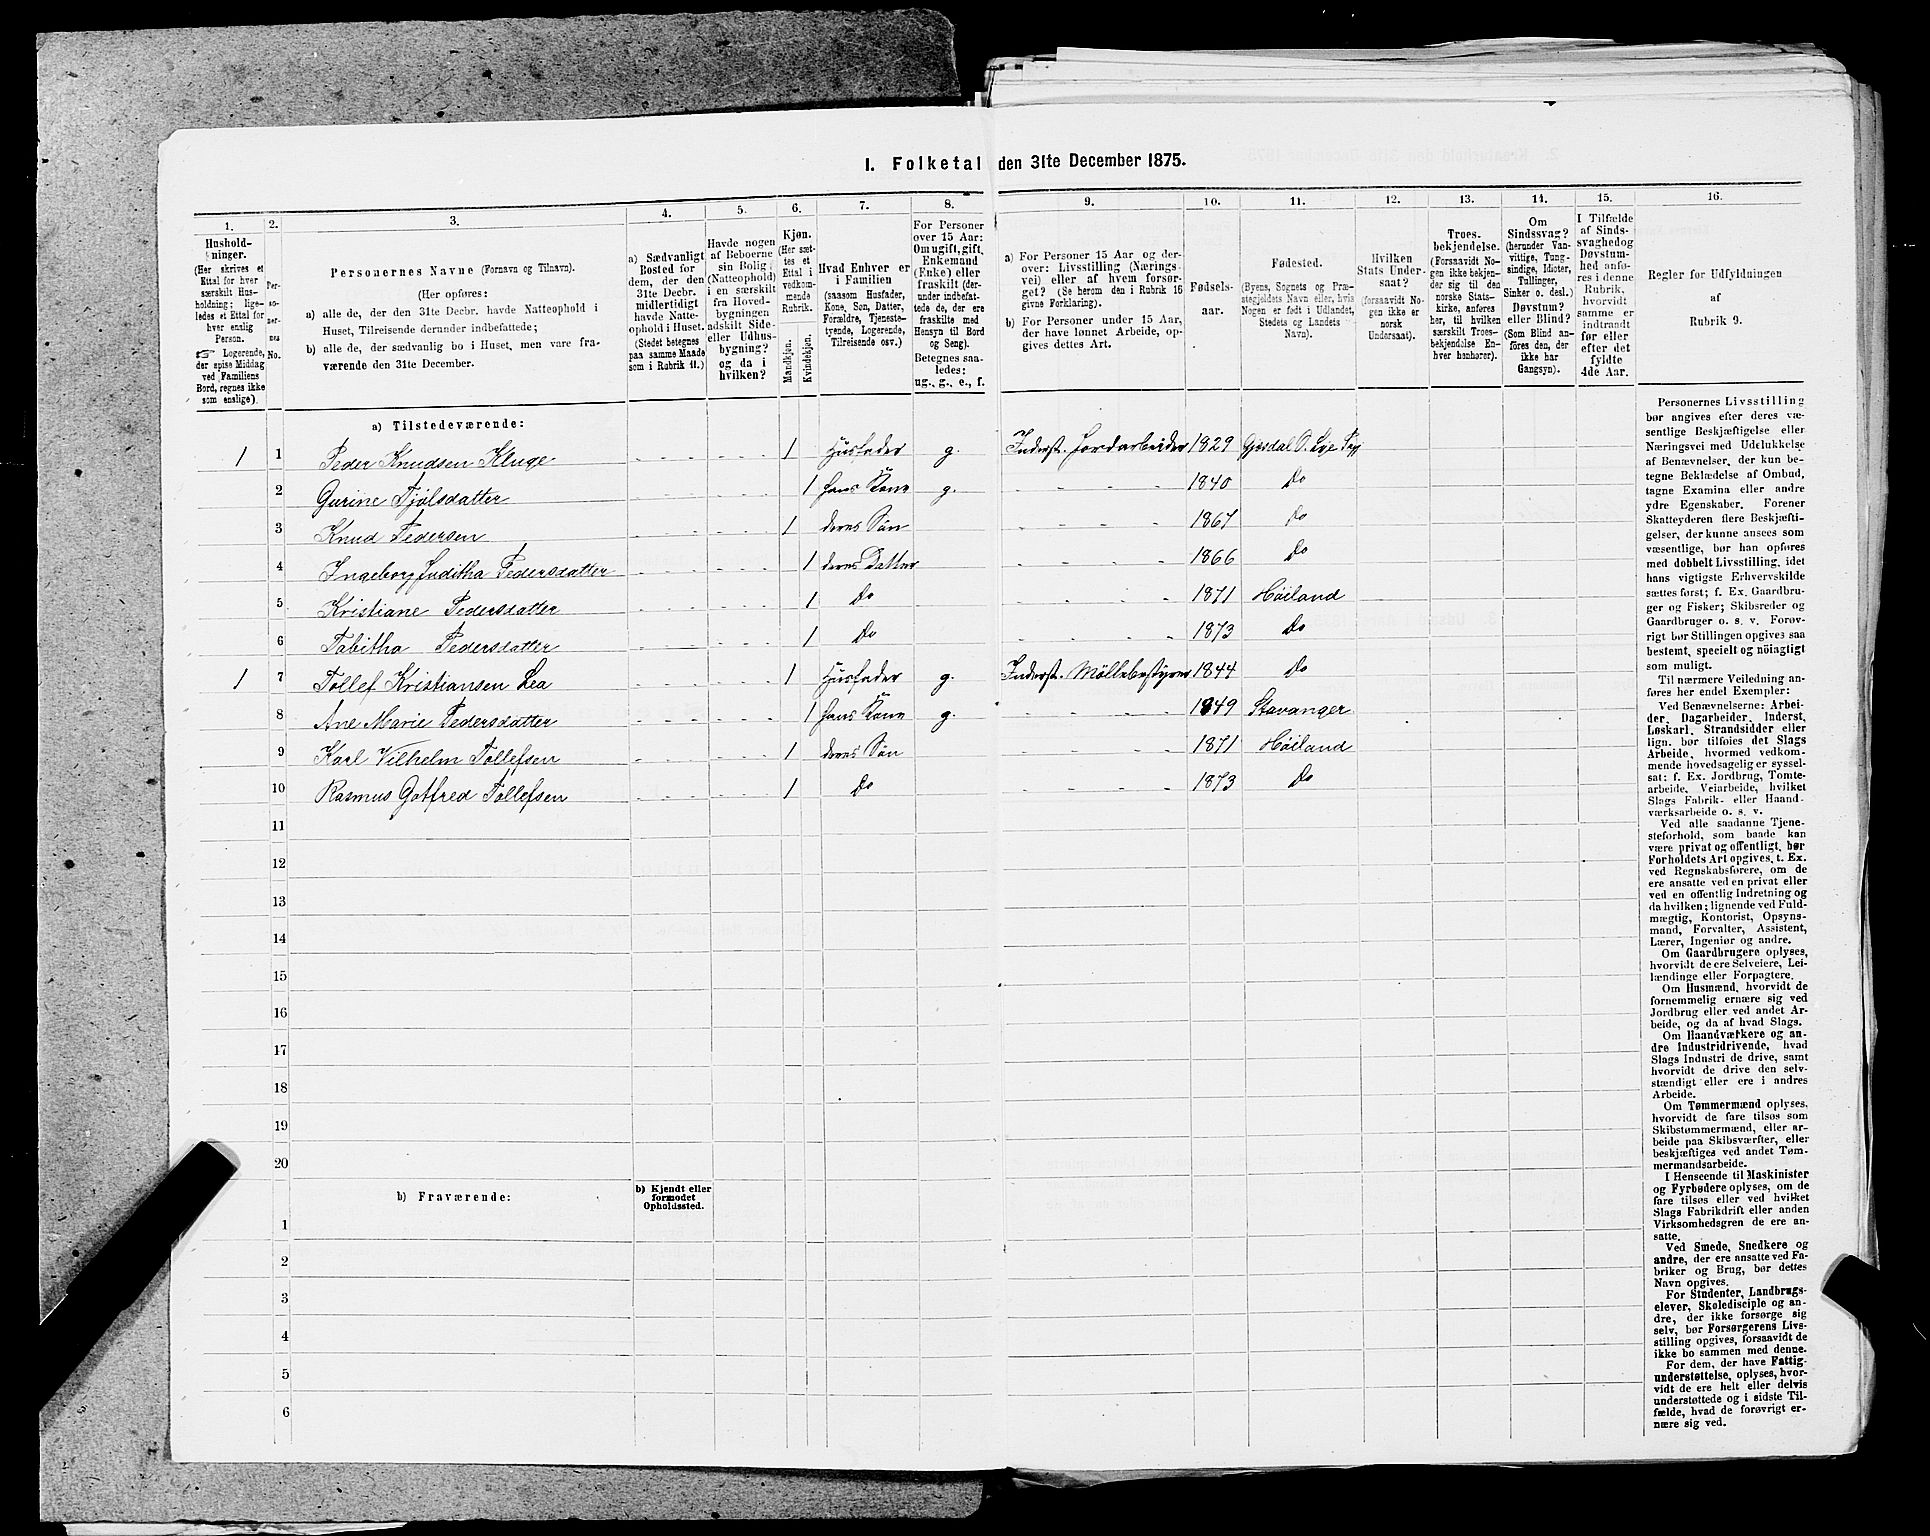 I. Folketal den 31te December 1875.
1. 2. 3. 4. 5. 6. 7. 8. 9. 10. 11. 12. 13. 14. 15. 16.
Hushold-
ninger.
(Her skrives et
Ettal for hver
særskilt Hus-
holdning; lige-
ledes et Ettal for
hver enslig
Person.
☞ Logerende,
der spise Middag
ved Familiens
Bord, regnes ikke
som enslige).
Per-
so-
ner-
nes
No.
Personernes Navne (Fornavn og Tilnavn).
(Her opføres:
a) alle de, der den 31te Decbr. havde Natteophold i
Huset, Tilreisende derunder indbefattede;
b) alle de, der sædvanlig bo i Huset, men vare fra-
værende den 31te December.
a) Sædvanligt
Bosted for
dem, der den
31te Decbr.
midlertidigt
havde Natte-
ophold i Huset.
(Stedet betegnes
paa samme Maade
som i Rubrik 11.)
Havde nogen
af Beboerne
sin Bolig
(Natteophold)
i en særskilt
fra Hoved-
bygningen
adskilt Side-
eller Udhus-
bygning?
og da i
hvilken?
Kjøn.
(Her sæt-
tes et
Ettal i
vedkom-
mende
Rubrik.
Mandkjøn.
Kvindekjøn.
Hvad Enhver er
i Familien
(saasom Husfader,
Kone, Søn, Datter,
Forældre, Tjeneste-
tyende, Logerende,
Tilreisende osv.)
For Personer
over 15 Aar:
Om ugift, gift,
Enkemand
(Enke) eller
fraskilt (der-
under indbefat-
tede de, der ere
fraskilte med
Hensyn til Bord
og Seng).
Betegnes saa-
ledes:
ug., g., e., f.
a) For Personer 15 Aar og der-
over: Livsstilling (Nærings-
vei) eller af hvem forsør-
get? (Se herom den i Rubrik 16
givne Forklaring).
b) For Personer under 15 Aar,
der have lønnet Arbeide, op-
gives dettes Art.
Fødsels-
aar.
Fødested.
(Byens, Sognets og Præ-
stegjeldets Navn eller, hvis
Nogen er født i Udlandet,
Stedets og Landets
Navn).
Hvilken
Stats Under-
saat?
(forsaavidt No-
gen ikke er
norsk
Undersaat).
Troes-
bekjendelse.
(Forsaavidt No-
gen ikke bekjen-
der sig til den
norske Stats-
kirke, anføres
her, til hvilken
særskilt Troes-
bekjendelse En-
hver henhører).
Om
Sindssvag?
(herunder Van-
vittige, Tung-
sindige, Idioter,
Tullinger,
Sinker o. desl.)
Døvstum?
eller Blind?
(Som Blind an-
føres den, der
ikke har
Gangsyn).
I Tilfælde
af Sinds-
svaghed og
Døvstum-
hed anfø-
res i denne
Rubrik,
hvorvidt
samme er
indtraadt
før eller
efter det
fyldte
4de Aar.
Regler for Udfyldningen
af
Rubrik 9.
a) Tilstedeværende:
1 1 Peder Knudsen Kluge 1 Husfader g. Inderst. Jordarbeider 1829 Gjesdal
2 Gurine Tjølsdatter 1 hans Kone g. 1840 Do
3 Knud Pedersen 1 deres Søn 1867 Do
4 Ingeborg Juditha Pedersdatter 1 deres Datter 1866 Do
5 Kristiane Pedersdatter 1 Do 1871 Høiland
6 Tabitha Pedersdatter 1 Do 1873 Do
1 7 Tollef Kristiansen Lea 1 Husfader g. Inderst. Møllebestyrer 1844 Do
8 Ane Marie Pedersdatter 1 hans Kone g. 1849 Stavanger
9 Karl Vilhelm Tollefsen 1 deres Søn 1871 Høiland
10 Rasmus Gotfred Tollefsen 1 Do 1873 Do
11
12
13
14
15
16
17
18
19
20
b) Fraværende: b) Kjendt eller
formodet
Opholdssted.
1
2
3
4
5
6
Personernes Livsstilling
bør angives efter deres væ-
sentlige Beskjæftigelse eller
Næringsvei med Udelukkelse
af Benævnelser, der kun be-
tegne Beklædelse af Ombud,
tagne Examina eller andre
ydre Egenskaber. Forener
Skatteyderen flere Beskjæfti-
gelser, der kunne ansees som
væsentlige, bør han opføres
med dobbelt Livsstilling, idet
hans vigtigste Erhvervskilde
sættes først; f. Ex. Gaardbru-
ger og Fisker; Skibsreder og
Gaardbruger o. s. v. Forøv-
rigt bør Stillingen opgives saa
bestemt, specielt og nöiagtigt
som muligt.
Til nærmere Veiledning an-
føres her endel Exempler:
Ved Benævnelserne: Arbei-
der, Dagarbeider, Inderst,
Løskarl, Strandsidder eller
lign. bør tilføies det Slags
Arbeide, hvormed vedkom-
mende hovedsagelig er syssel-
sat: f. Ex. Jordbrug, Tomte-
arbeide, Veiarbeide, hvilket
Slags Fabrik- eller Haand-
værksarbeide o. s. v.
Ved alle saadanne Tjene-
steforhold, som baade kan
være privat og offentligt, bør
Forholdets Art opgives, t. Ex.
ved Regnskabsførere, om de
ere ansatte ved en privat eller
ved en offentlig Indretning og
da hvilken; lignende ved Fuld-
mægtig, Kontorist, Opsyns-
mand, Forvalter, Assistent,
Lærer, Ingeniør og andre.
Om Gaardbrugere oplyses,
hvorvidt de ere Selveiere, Lei-
lændinge eller Forpagtere.
Om Husmænd, hvorvidt de
fornemmelig ernære sig ved
Jordbrug eller ved andet Ar-
beide, og da af hvad Slags.
Om Haandværkere og an-
dre Industridrivende, hvad
Slags Industri de drive, samt
hvorvidt de drive den selv-
stændigt eller ere i andres
Arbeide.
Om Tømmermænd oplyses,
hvorvidt de fare tilsøs som
Skibstømmermænd, eller ar-
beide paa Skibsværfter, eller
beskjæftiges ved andet Tøm-
mermandsarbeide.
I Henseende til Maskinister
og Fyrbødere oplyses, om de
fare tilsøs eller ved hvilket
Slags Fabrikdrift eller anden
Virksomhedsgren de ere an-
satte.
Ved Smede, Snedkere og
andre, der ere ansatte ved Fa-
briker og Brug, bør dettes
Navn opgives.
For Studenter, Landbrugs-
elever, Skoledisciple og an-
dre, der ikke forsørge sig
selv, bør Forsørgerens Livs-
stilling opgives, forsaavidt de
ikke bo sammen med denne.
For dem, der have Fattig-
understøttelse, oplyses, hvor-
vidt de ere helt eller delvis
understøttede og i sidste Til-
fælde, hvad de forøvrigt er-
nære sig ved.